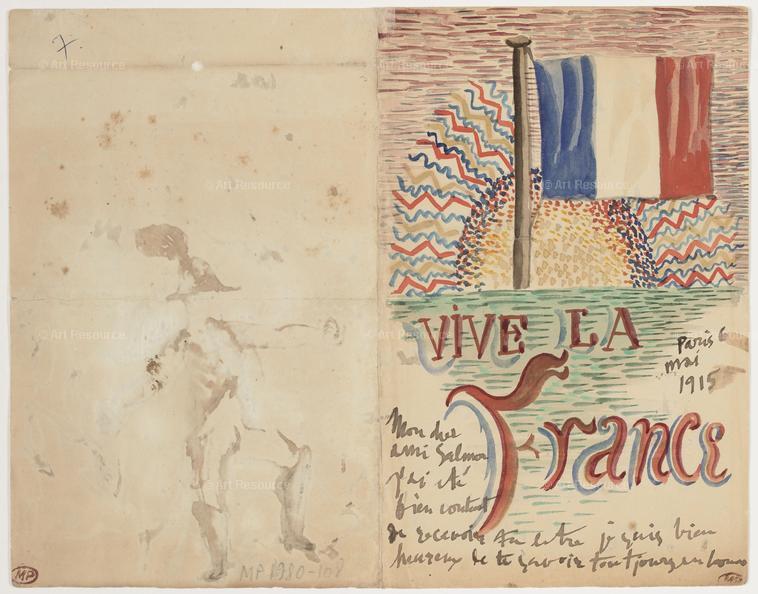 7.
VIVE LA
Paris 6
mai
1915
France
Mon cher
ami Salmon
j'ai été
bien content
de recevoir ta letre je suis bien
heureux de te savoir toutjours en bonne
MP
MP 1980-108
© Art Resource
© Art Resource
© Art Resource
© Art Resource
© Art Resource
© Art Resource
© Art Resource
© Art Resource